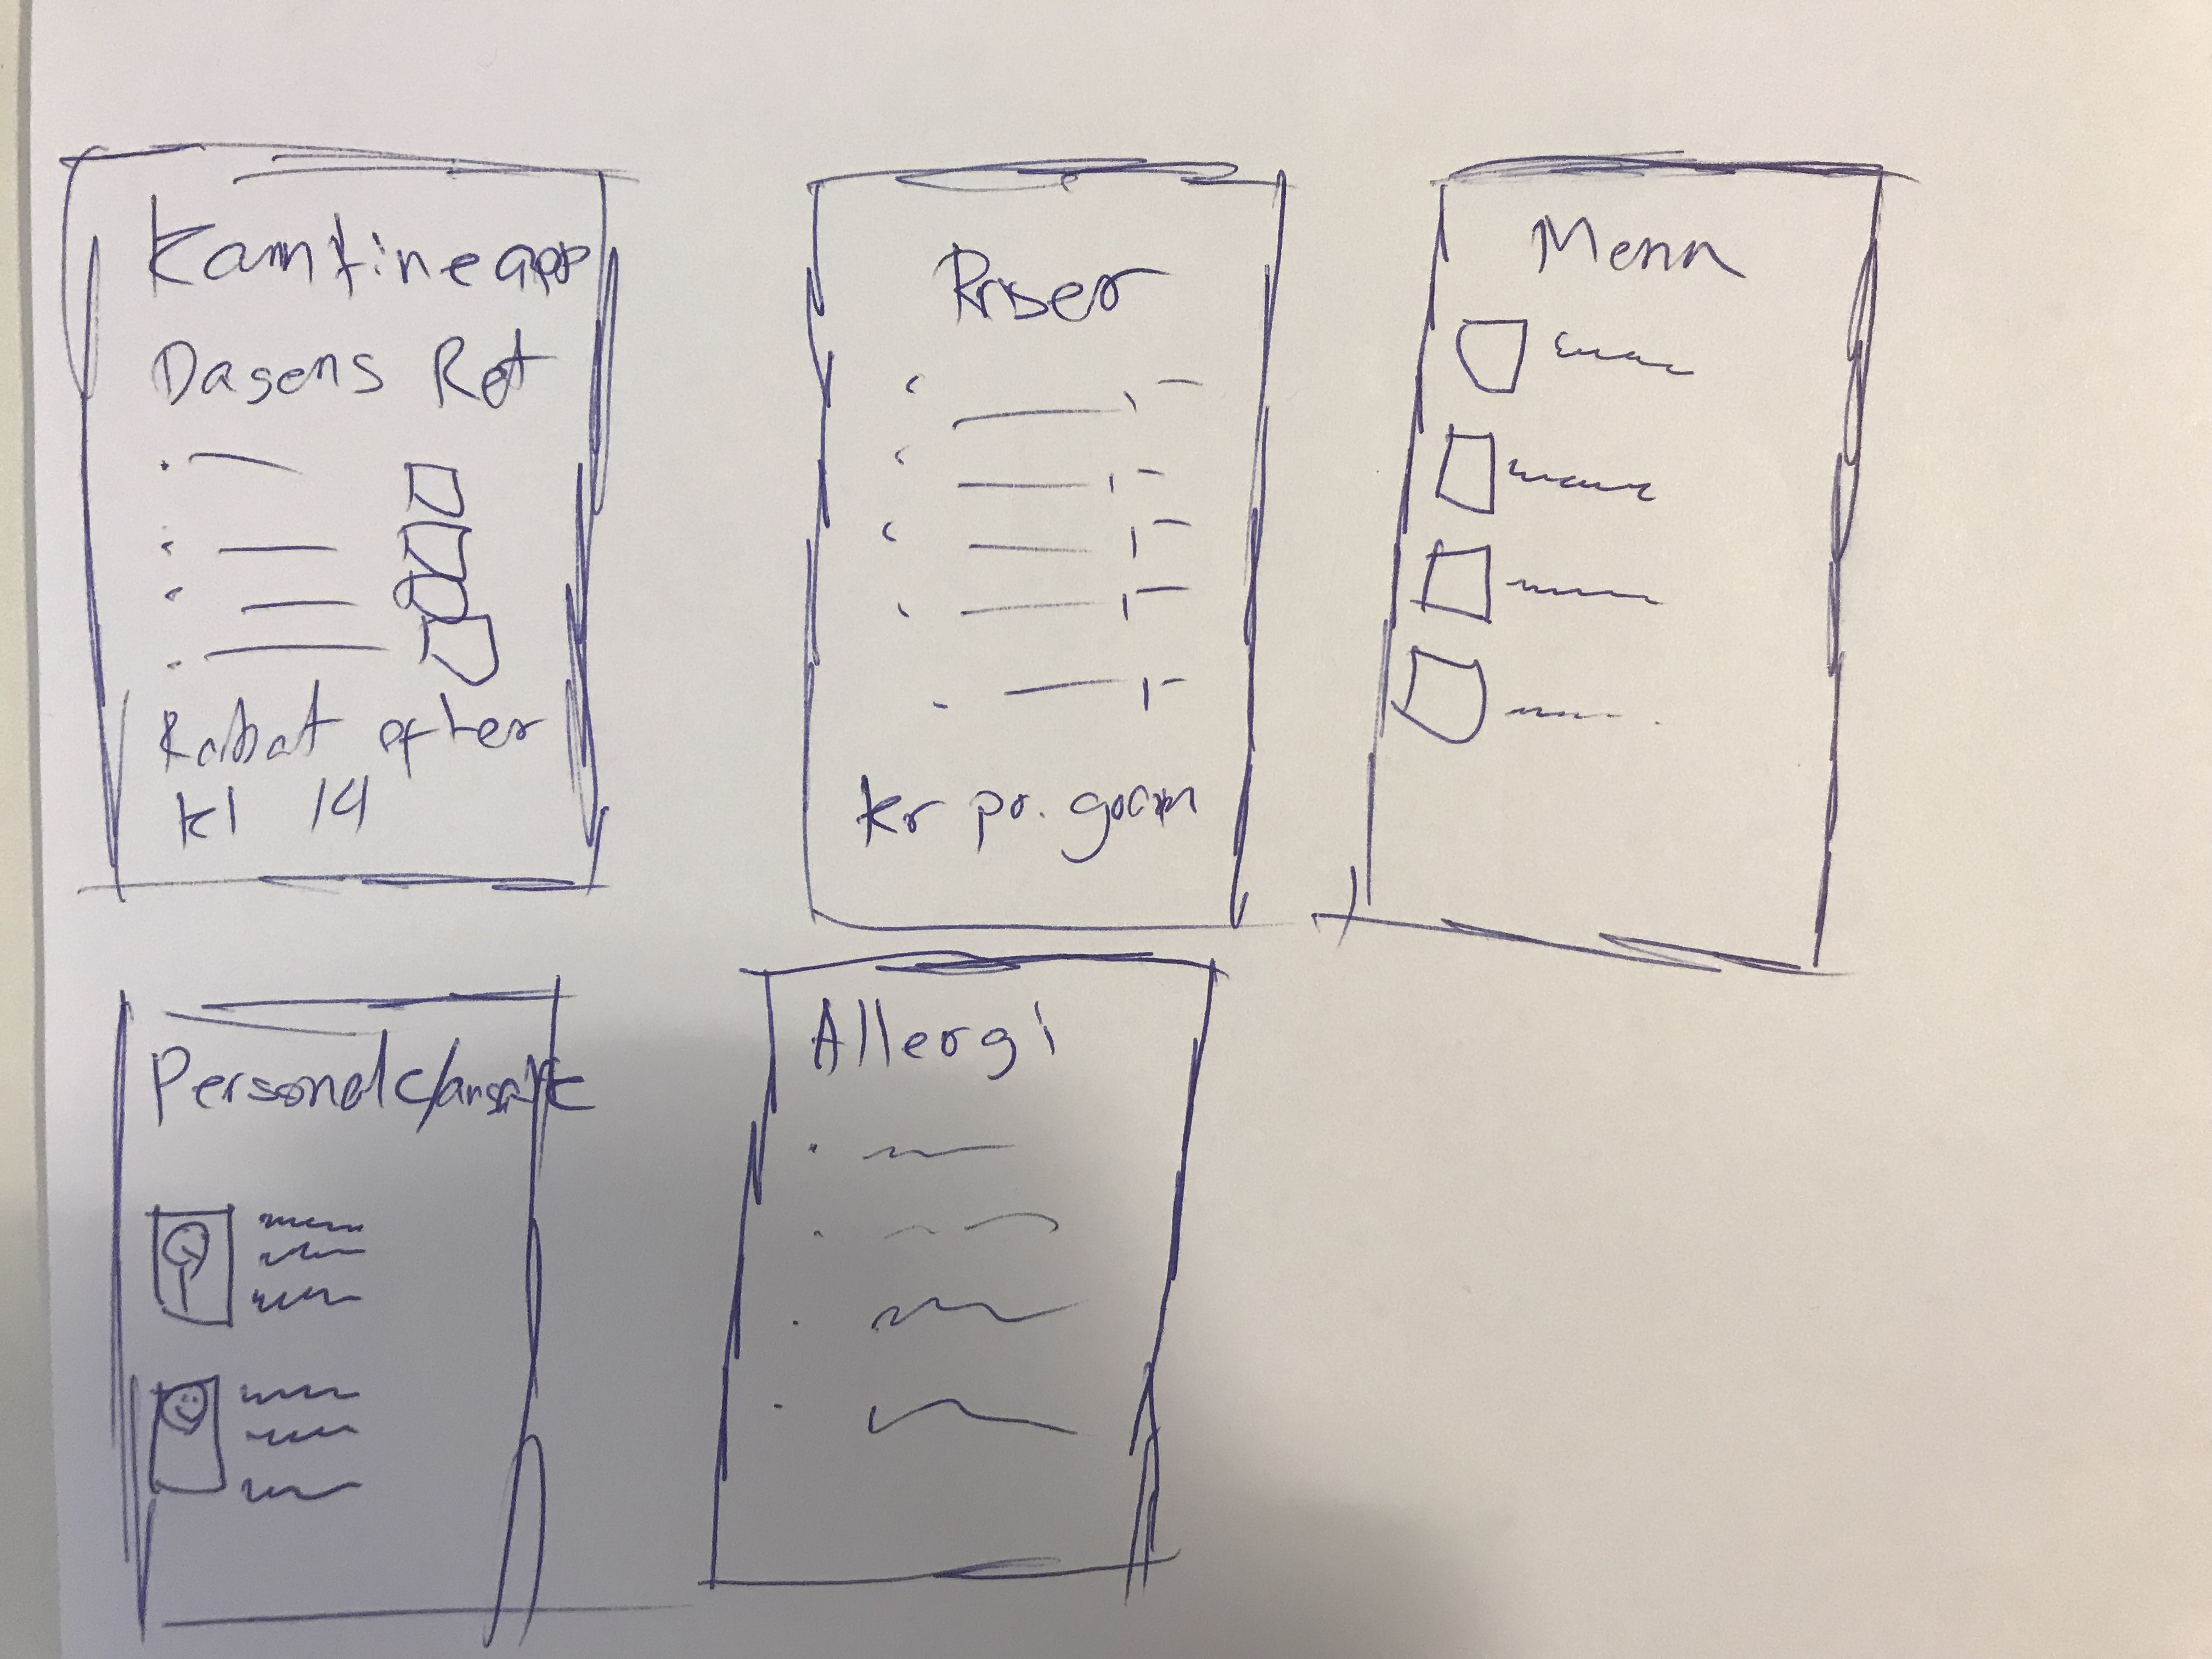 Kantine app
Dagens Ret
Rabat efter
kl 14
Priser
kr pr. gram
Menu
Personale/ansatte
Allergi